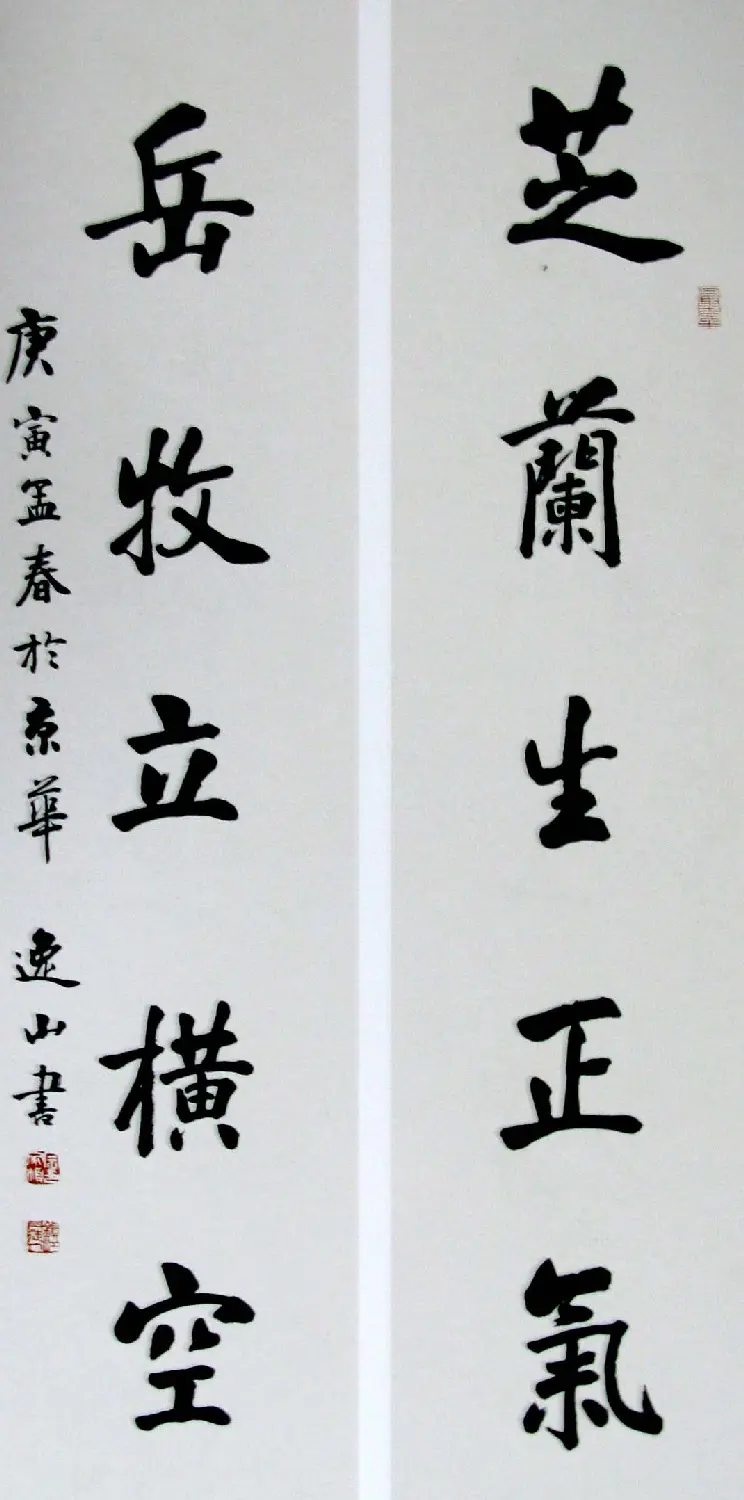 芝蘭生正氣
岳牧立橫空
庚寅孟春於京華 逸山書